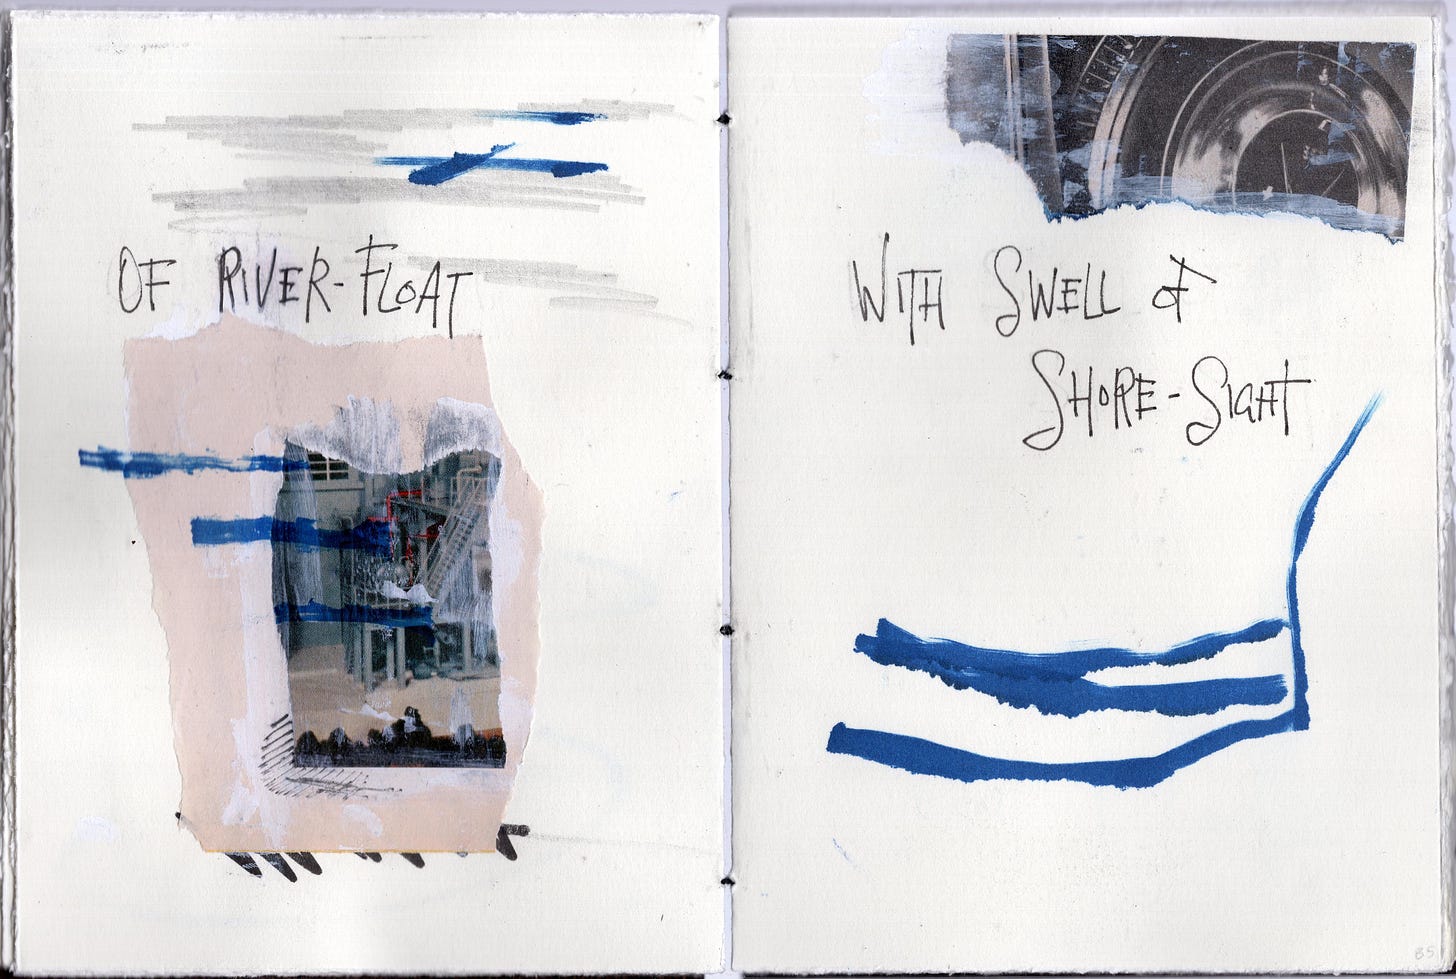 OF RIVER-FLOAT
WITH SWELL OF
SHORE-SIGHT